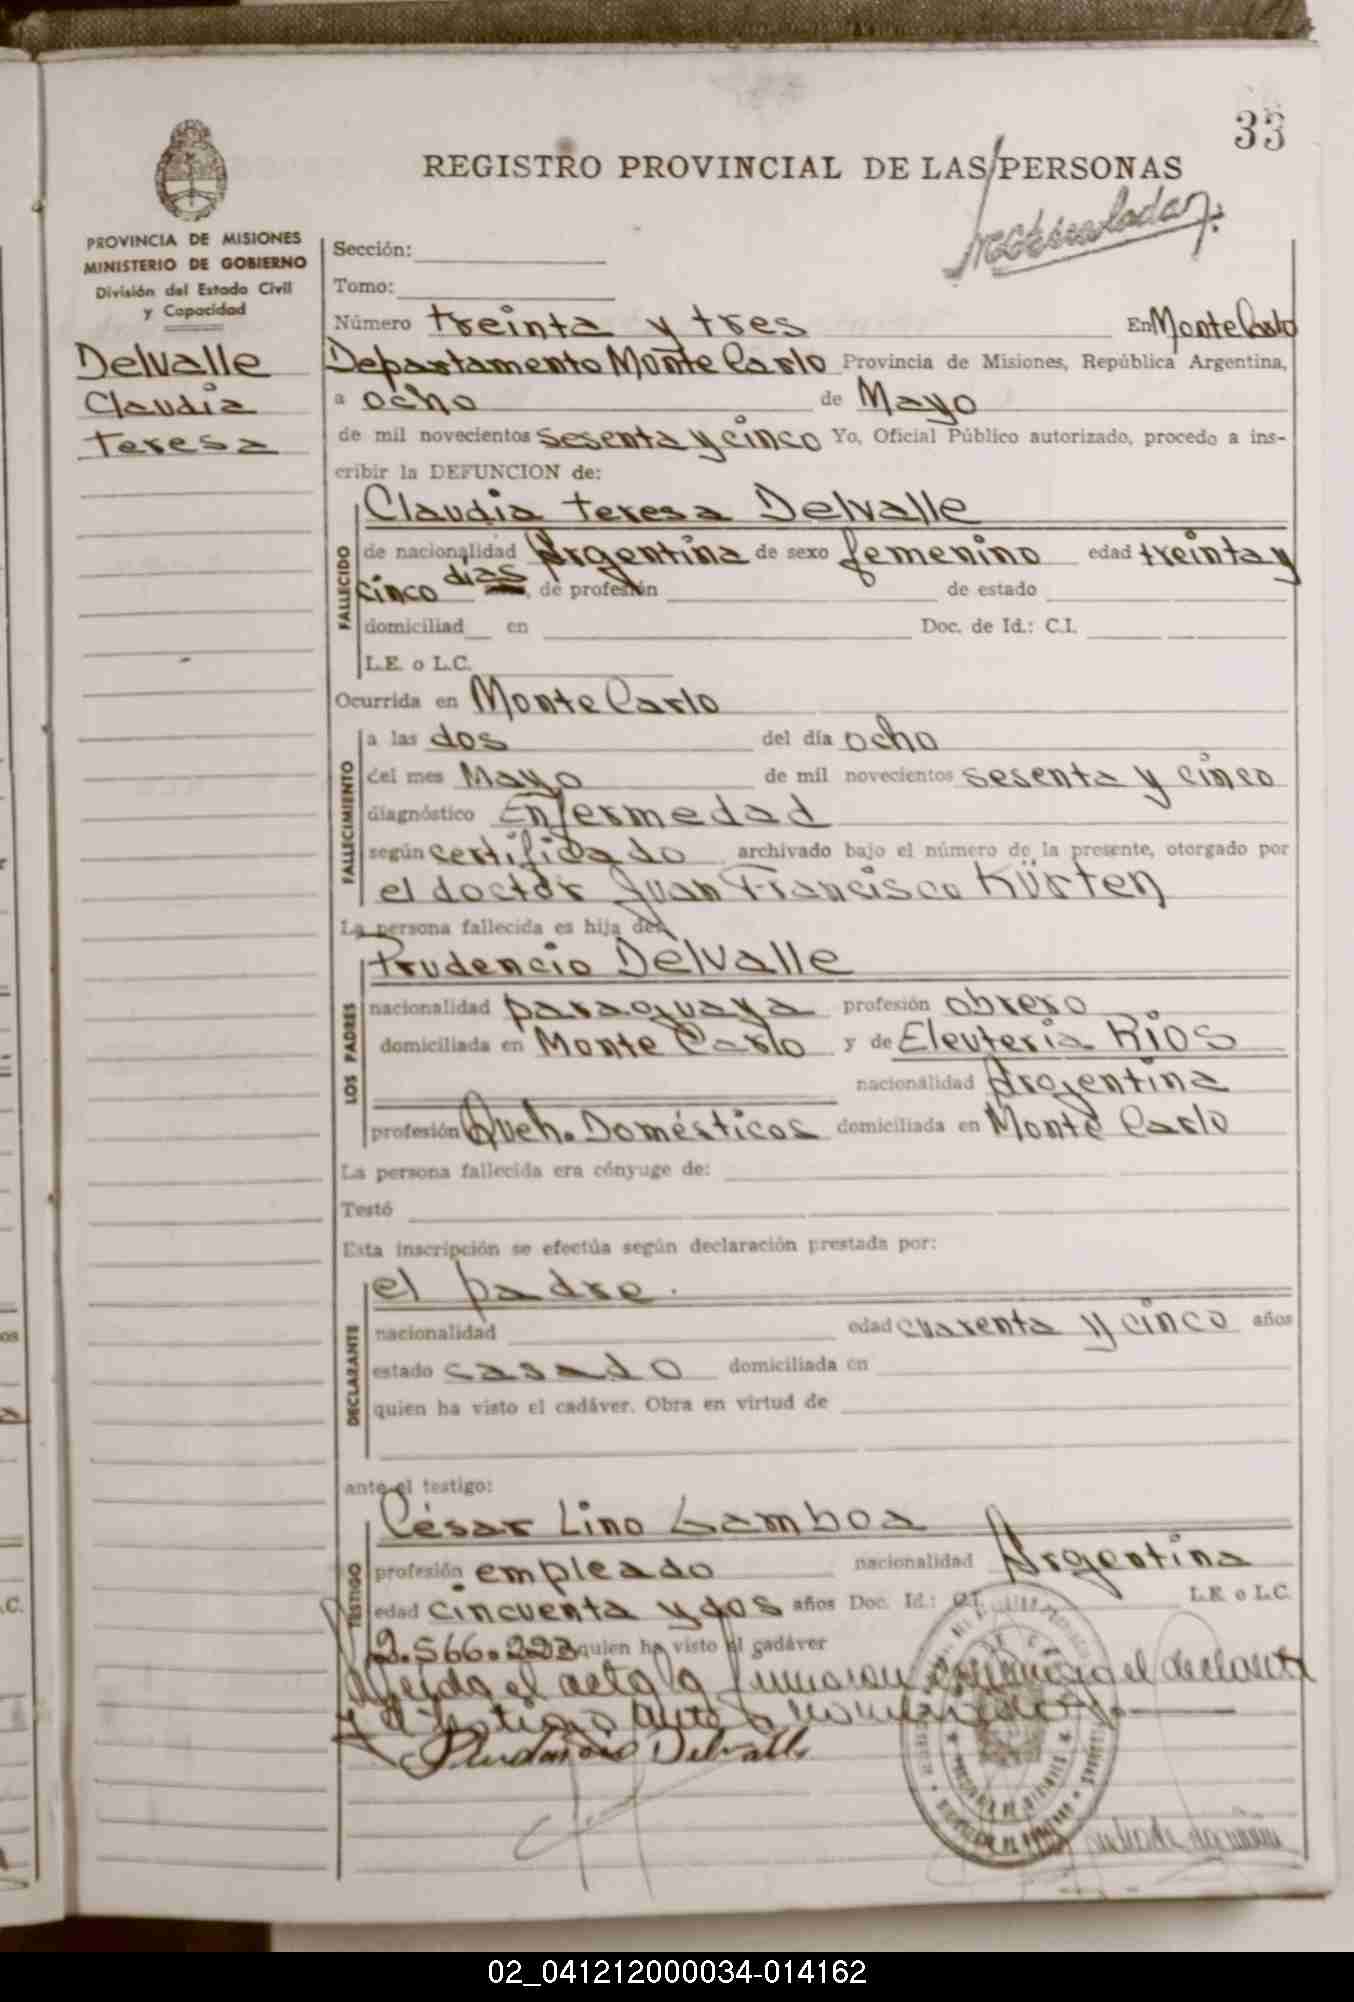 33
REGISTRO PROVINCIAL DE LAS PERSONAS
PROVINCIA DE MISIONES
MINISTERIO DE GOBIERNO
División del Estado Civil
y Capacidad
Delvalle
Claudia
Teresa
Sección:
Tomo:
Número treinta y tres En Monte Carlo
Departamento Monte Carlo Provincia de Misiones, República Argentina,
a ocho de Mayo
de mil novecientos sesenta y cinco Yo, Oficial Público autorizado, procedo a ins-
cribir la DEFUNCION de:
Claudia Teresa Delvalle
FALLECIDO
de nacionalidad Argentina de sexo femenino edad treinta y
cinco días, de profesión de estado
domiciliad en Doc. de Id.: C.I.
L.E. o L.C.
Ocurrida en Monte Carlo
FALLECIMIENTO
a las dos del día ocho
del mes Mayo de mil novecientos sesenta y cinco
diagnóstico Enfermedad
según certificado archivado bajo el número de la presente, otorgado por
el doctor Juan Francisco Kürten
La persona fallecida es hija de:
LOS PADRES
Prudencio Delvalle
nacionalidad paraguaya profesión obrero
domiciliada en Monte Carlo y de Eleuteria Ríos
nacionalidad Argentina
profesión Queh. Domésticos domiciliada en Monte Carlo
La persona fallecida era cónyuge de:
Testó
Esta inscripción se efectúa según declaración prestada por:
DECLARANTE
el padre.
nacionalidad edad cuarenta y cinco años
estado casado domiciliada en
quien ha visto el cadáver. Obra en virtud de
ante el testigo:
TESTIGO
César Lino Gamboa
profesión empleado nacionalidad Argentina
edad cincuenta y dos años Doc. Id.: C.I. L.E. o L.C.
2.566.223 quien ha visto el cadáver
Leida el acta la firmaron conmigo el declarante
y el testigo antes nombrados.
Prudencio Delvalle
02_041212000034-014162